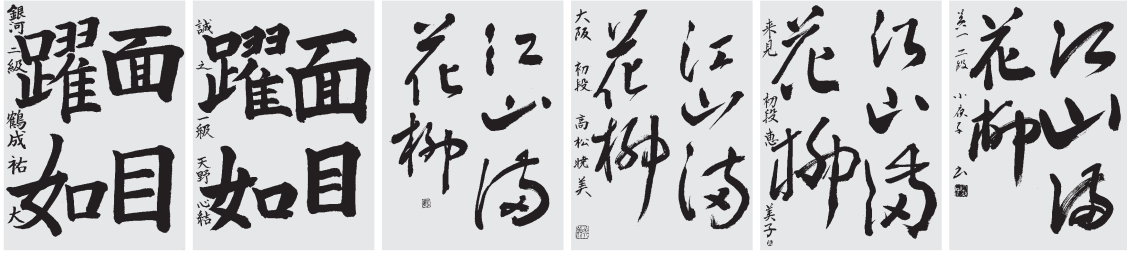 面目
躍如
銀河 二級 鶴成祐大
面目
躍如
誠之 一級 天野心結
江山満
花柳
江山満
花柳
大阪 初段 高松暁美
江山満
花柳
来見 初段 恵美子
江山満
花柳
二段 小夜子